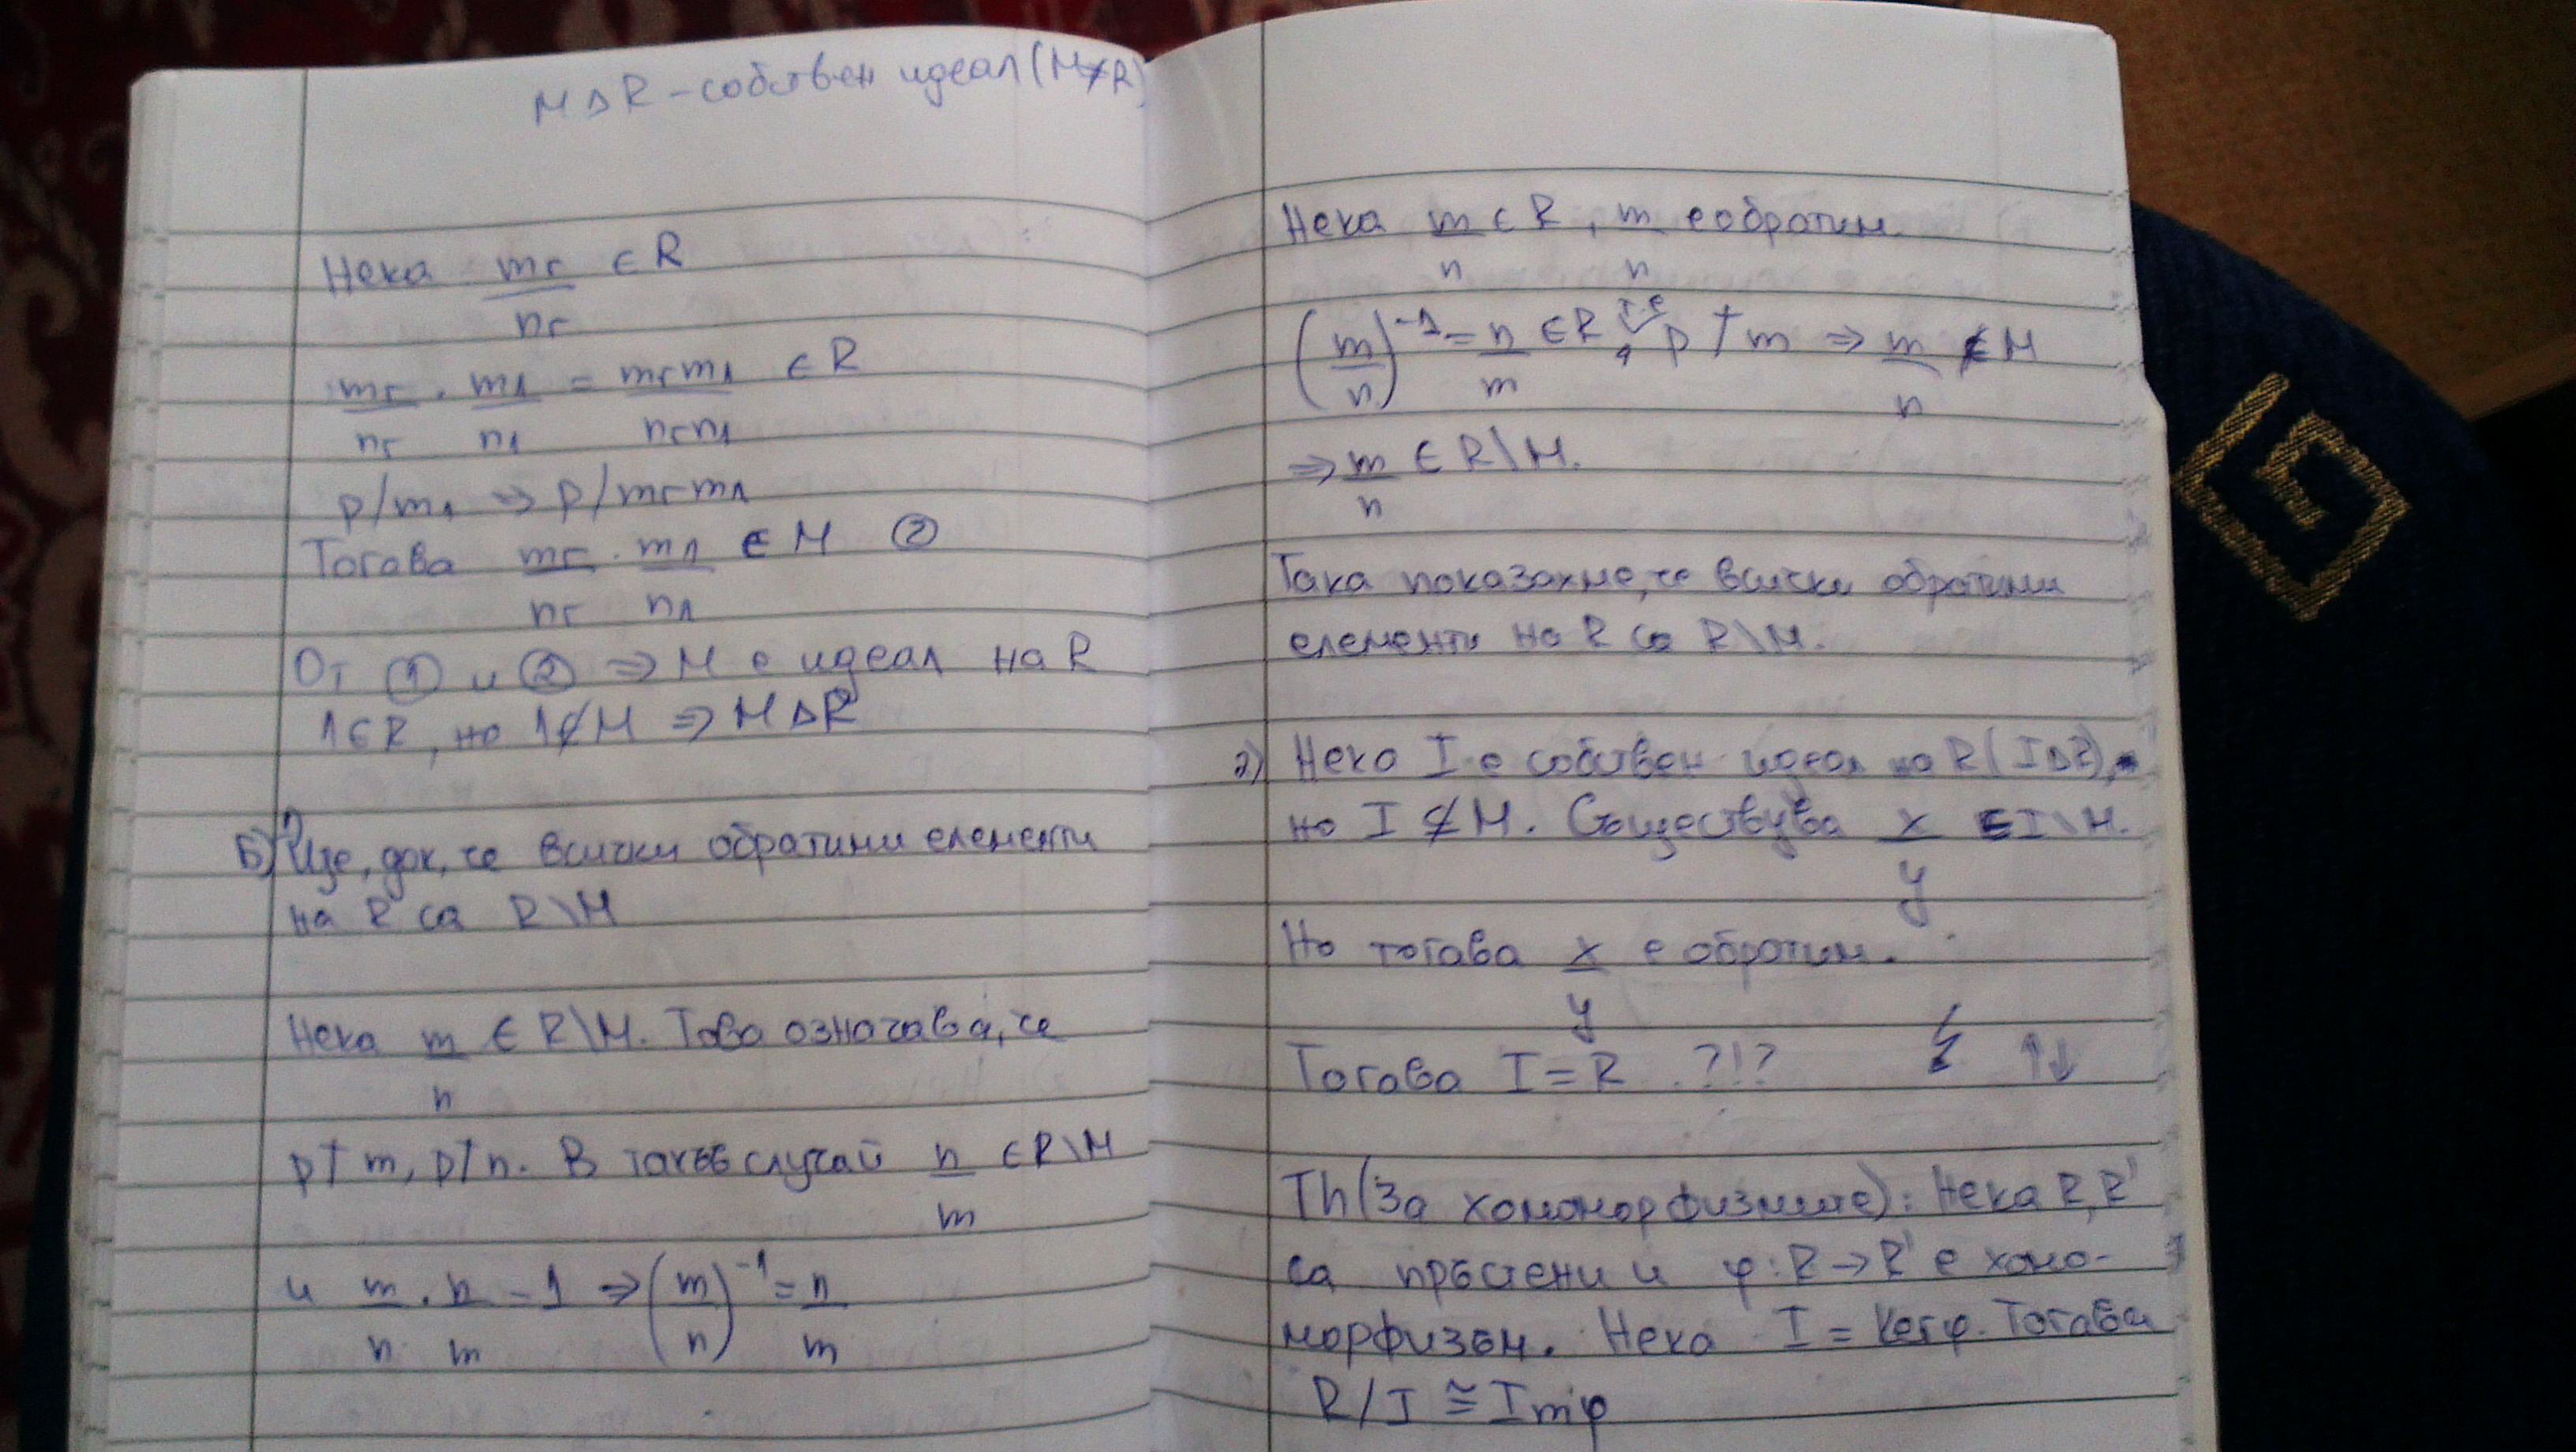 M Δ R - собствен идеал (M≠R)
Нека m_г/n_г ∈ R
m_г/n_г . m_1/n_1 = m_г m_1/n_г n_1 ∈ R
p/m_1 => p/m_г m_1
Тогава m_г/n_г . m_1/n_1 ∈ M ②
От ① и ② => M е идеал на R
1∈R, но 1∉M => M Δ R
Б) Ще док, че всички обратими елементи
на R са R\M
Нека m/n ∈ R\M. Това означава, че
p∤m, p∤n. В такъв случай n/m ∈ R\M
и m/n . n/m = 1 => (m/n)^-1 = n/m
Нека m/n ∈ R, m/n е обратим.
(m/n)^-1 = n/m ∈ R, т.е. p ∤ m => m/n ∉ M
=> m/n ∈ R\M.
Така показахме, че всички обратими
елементи на R са R\M.
2) Нека I е собствен идеал на R (I Δ R),
но I ⊄ M. Съществува x/y ∈ I\M.
Но тогава x/y е обратим.
Тогава I = R ?!? ↯ ↑↓
Th (За хомоморфизмите): Нека R, R'
са пръстени и φ: R → R' е хомо-
морфизъм. Нека I = Kerφ. Тогава
R/I ≅ Imφ